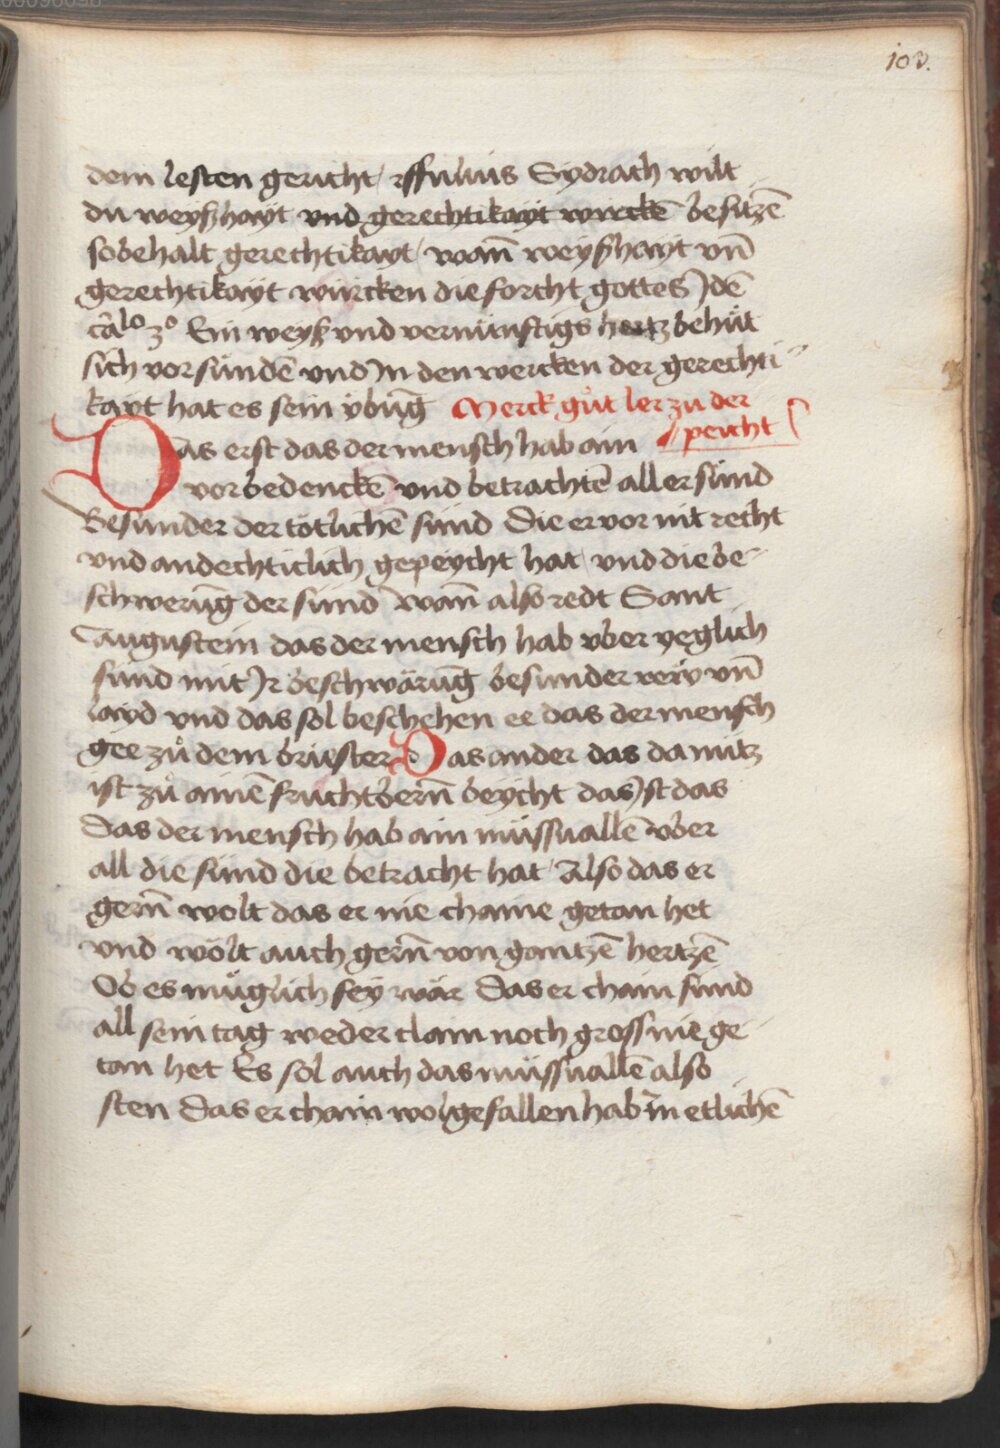 103.
dem lesten gericht / Jhesus Sydrach wilt
du weyßhayt vnd gerechtikayt wircke͂ besitze͂
so behalt gerechtikayt / wan͂ weyßhayt vn͂
gerechtikayt würcken die forcht gottes Jde͂
ca͂lo 3o Ein weyß vnd vernünftigs hertz behüt
sich vor sünde͂ vnd Jn den wercken der gerechti
kayt hat es sein ybu͂g Merck gůt ler zu der
peicht
Das erst das der mensch hab ain
vor bedencke͂ vnd betrachte͂ all er sünd
Besunder der tötliche͂ sünd Die er vor nit recht
vnd andechticlich gepeycht hat vnd die be
schweru͂g der sünd Wan͂ also redt Sant
Augustein das der mensch hab vber yeglich
sünd mit Jr beschwäru͂g besunder rew vn͂
layd vnd das sol beschehen ee das der mensch
gee zů dem briester Das ander das da nutz
ist zů aine͂ fruchtbern͂ beycht das Jst das
Das der mensch hab ain müssualle͂ vber
all die sünd die betracht hat Also das er
gern͂ wolt das er nie chaine getan het
vnd wölt auch gern͂ von gantze͂ hertze͂
Ob es müglich sey wär Das er chain sünd
all sein tag weder clain noch gross nie ge
tan het Es sol auch das müssualle͂ also
sten Das er chain wolgefallen hab Jn etliche͂